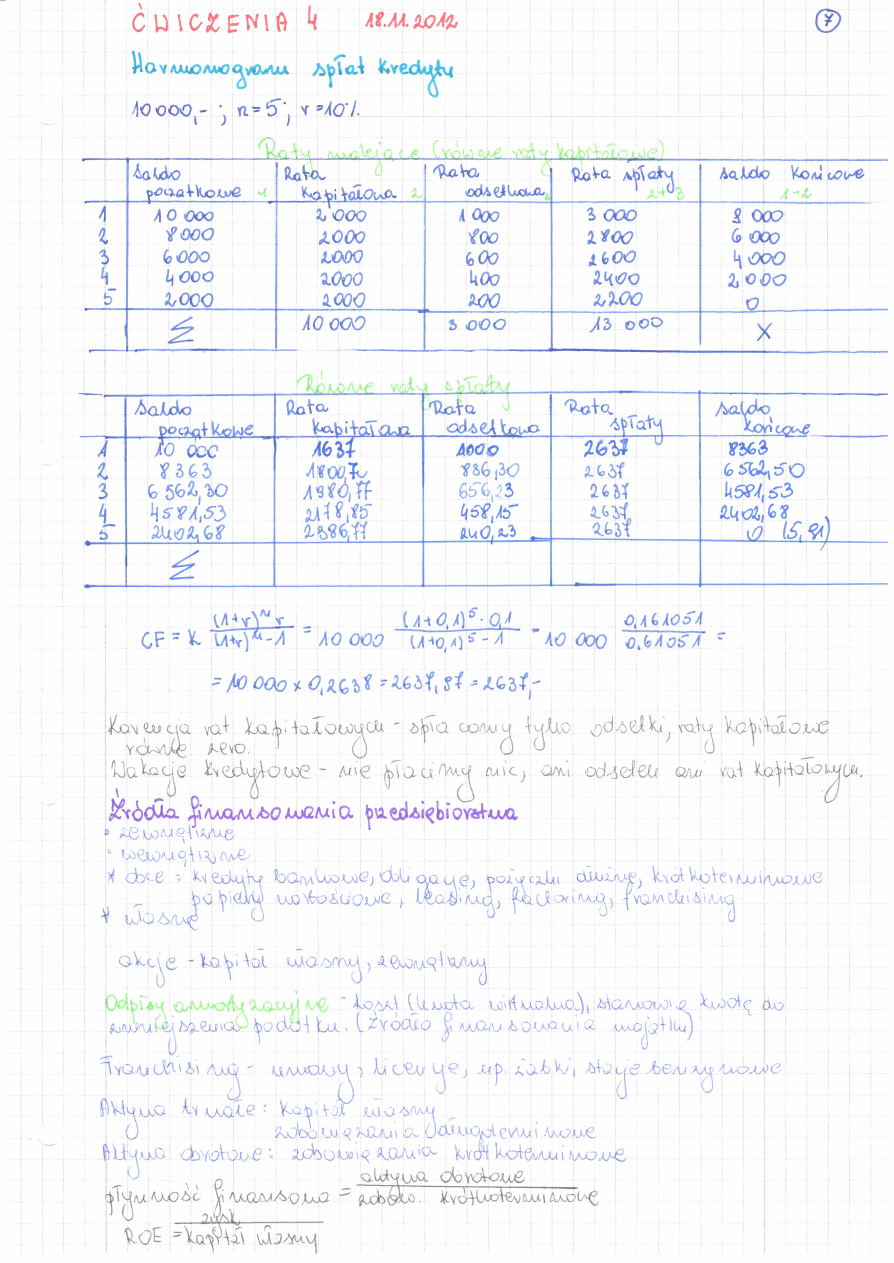 ĆWICZENIA 4 18.11.2012 7
Harmonogram spłat kredytu
10 000,- ; n=5 ; r=10%.
Raty malejące (równe raty kapitałowe)
Saldo początkowe 1 | Rata kapitałowa 2 | Rata odsetkowa 3 | Rata spłaty 2+3 | saldo końcowe 1-2
1 10 000 2 000 1 000 3 000 8 000
2 8000 2000 800 2800 6 000
3 6000 2000 600 2600 4 000
4 4000 2000 400 2400 2,000
5 2000 2000 200 2200 0
Σ 10 000 3 000 13 000 X
Równe raty spłaty
Saldo początkowe | Rata kapitałowa | Rata odsetkowa | Rata spłaty | saldo końcowe
1 10 000 1637 1000 2637 8363
2 8363 1800,70 836,30 2637 6562,50
3 6562,30 1980,77 656,23 2637 4581,53
4 4581,53 2178,85 458,15 2637 2402,68
5 2402,68 2386,77 240,23 2637 0 (5,91)
Σ
CF = K (1+r)^n r / (1+r)^n - 1 = 10 000 (1+0,1)^5 · 0,1 / (1+0,1)^5 - 1 = 10 000 0,161051 / 0,61051 =
= 10 000 x 0,2638 = 2637,97 = 2637,-
Karencja rat kapitałowych - spłacamy tylko odsetki, raty kapitałowe
równe zero.
Wakacje kredytowe - nie płacimy nic, ani odsetek ani rat kapitałowych.
Źródła finansowania przedsiębiorstwa
• zewnętrzne
• wewnętrzne
* obce : kredyty bankowe, obligacje, pożyczki dłużne, krótkoterminowe
papiery wartościowe, leasing, factoring, franchising
* własne
akcje - kapitał własny, zewnętrzny
Odpisy amortyzacyjne - koszt (kwota wirtualna), stanowią kwotę do
zmniejszenia podatku. (źródło finansowania majątku)
Franchising - umowy, licencje, np. żabki, stacje benzynowe
Aktywa trwałe : kapitał własny
zobowiązania długoterminowe
Aktywa obrotowe : zobowiązania krótkoterminowe
płynność finansowa = aktywa obrotowe / zobow. krótkoterminowe
ROE = zysk / kapitał własny